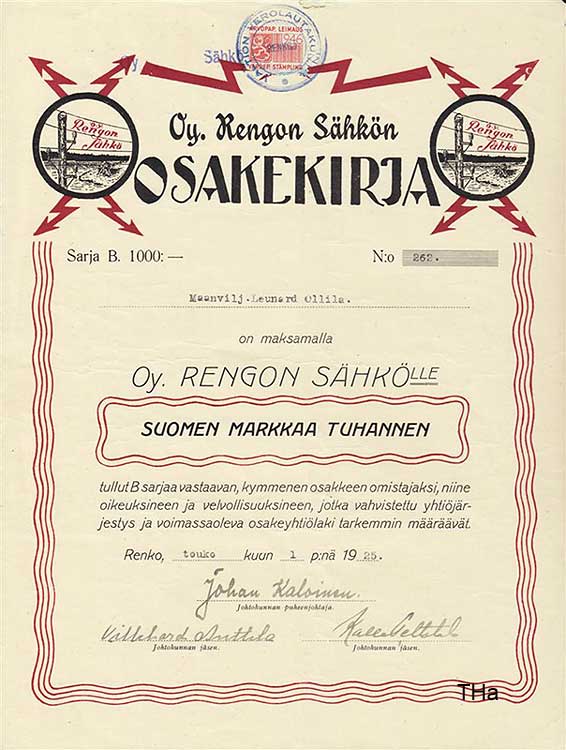 Oy
Sähkö
ARVOPAP. LEIMAUS
1946
VÄRDEP. STÄMPLING
Oy. Rengon Sähkön
OSAKEKIRJA
Rengon
Sähkö
Rengon
Sähkö
Sarja B. 1000:—
N:o 262.
Maanvilj. Leunard Ollila.
on maksamalla
Oy. RENGON SÄHKÖLLE
SUOMEN MARKKAA TUHANNEN
tullut B sarjaa vastaavan, kymmenen osakkeen omistajaksi, niine
oikeuksineen ja velvollisuuksineen, jotka vahvistettu yhtiöjär-
jestys ja voimassaoleva osakeyhtiölaki tarkemmin määräävät.
Renko, touko kuun 1 p:nä 1925.
Johan Kaloinen.
Johtokunnan puheenjohtaja.
Anttila
Kalle
Johtokunnan jäsen.
Johtokunnan jäsen.
THa